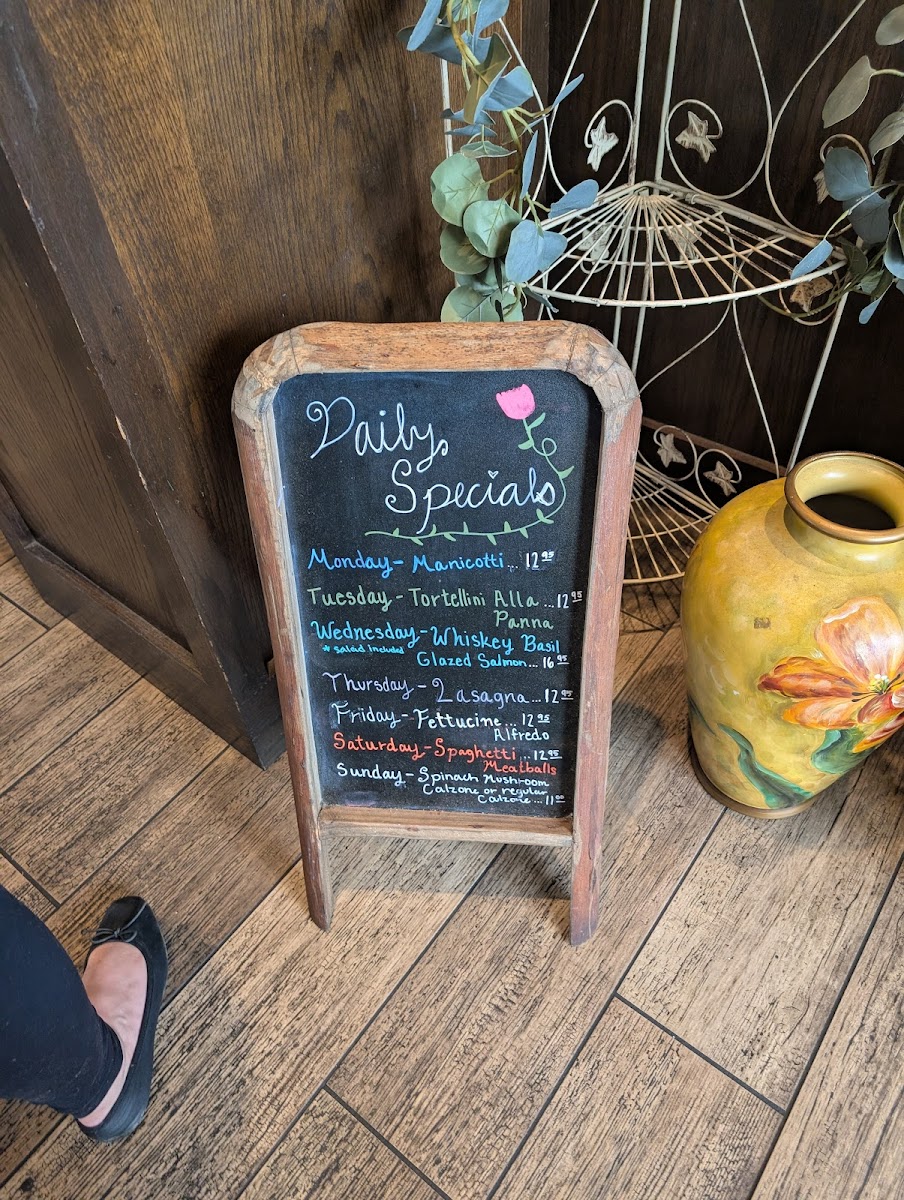 Daily
Specials
Monday - Manicotti ... 12 95
Tuesday - Tortellini Alla ... 12 95
Panna
Wednesday - Whiskey Basil
* Salad included
Glazed Salmon ... 16 95
Thursday - Lasagna ... 12 95
Friday - Fettucine ... 12 95
Alfredo
Saturday - Spaghetti ... 12 95
Meatballs
Sunday - Spinach Mushroom
Calzone or regular
Calzone ... 11 00